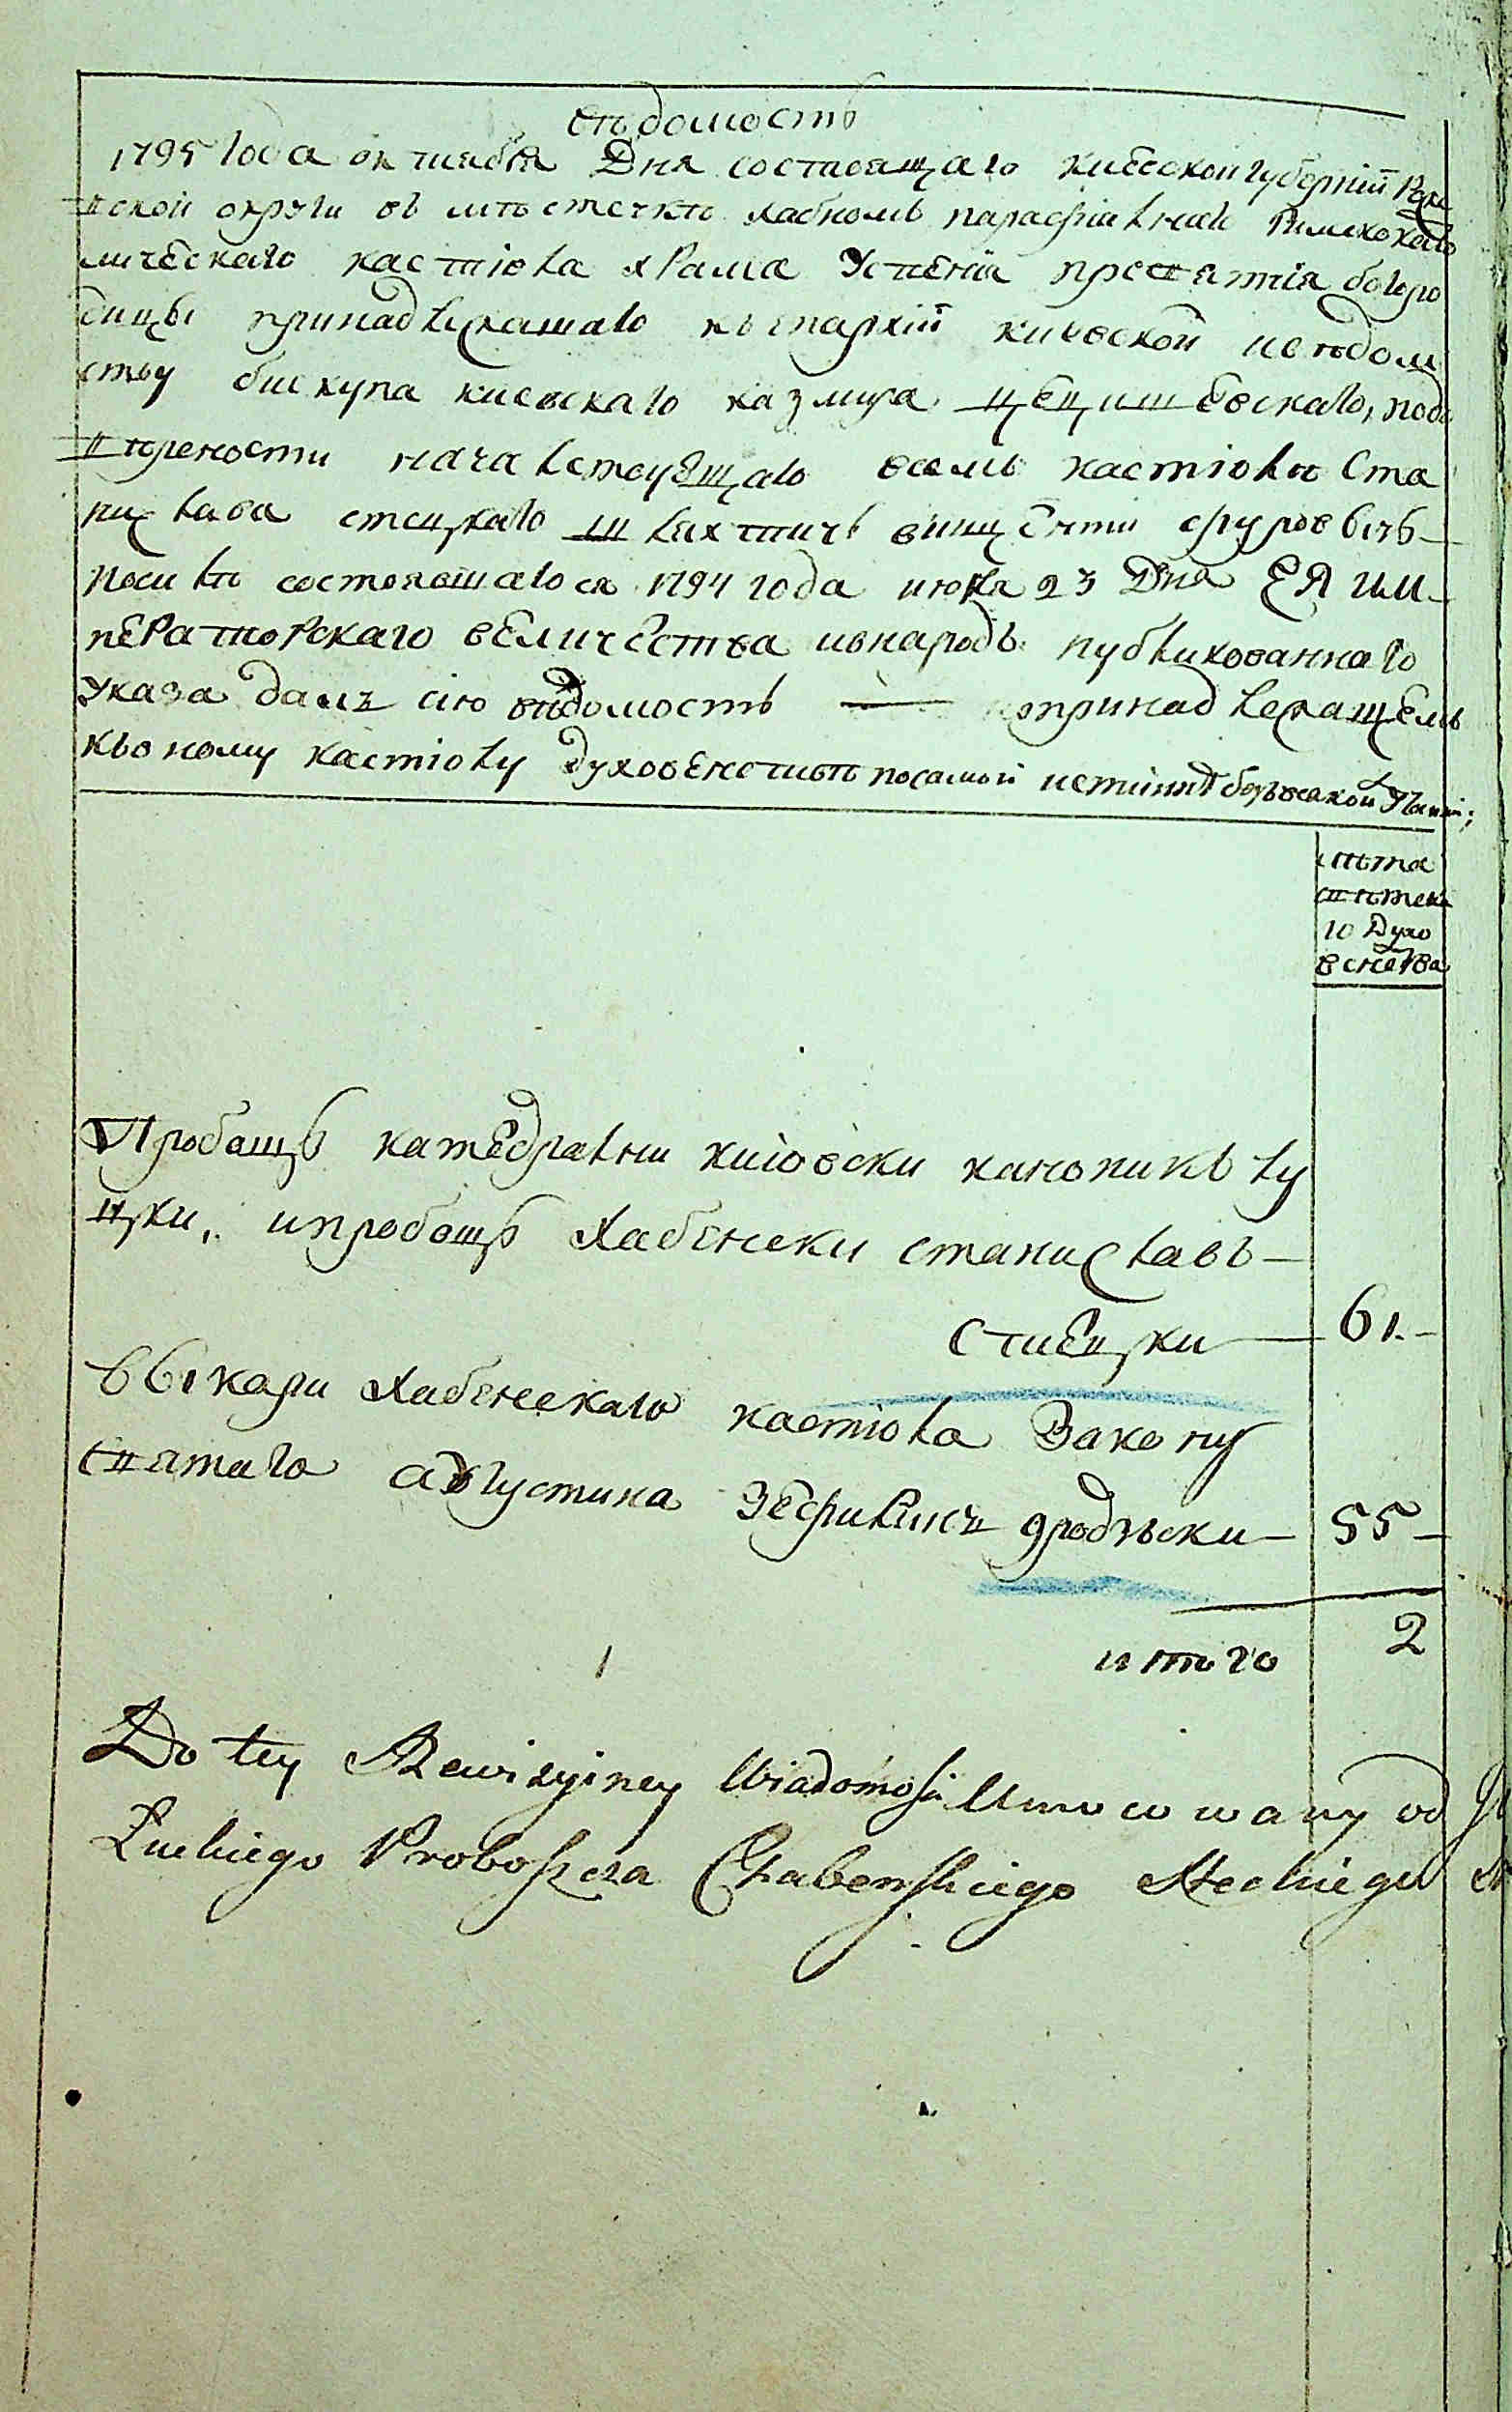 вѣдомость
1795 года октября Дня состоящаго киевской губернїи Рахо
мской округи въ мѣстечкѣ хабномъ парафіални Римскокато
лическаго костіола храма Успенія пресвятїя богоро
дицы принадлежашаго къ епархїи киевской и вѣдом
ству бискупа киевскаго казмира цецишевскаго, подо
вѣрености началствующаго всемъ костіолѣ Ста
нислава стецкаго
посилѣ состоявшагося 1794 года июня 23 Дня ЕЯ им
пЕРаторскаго вЕличЕства и внародъ публикованнаго
Указа далъ сію вѣдомость — о принадлежащемъ
къ оному костіолу духовенствѣ посамой истиннѣ безъ всякой утайки;
лѣта
светска
го Духо
венства
Пробощъ катедрални киіовски каноникъ лу
цки, и пробощъ Хабенски станиславъ —
Стецки — 61. —
Выкари Хабенскаго костіола Закону
святаго августина Зефиринъ дродзъски — 55 —
итого 2
Do tey Rewizyiney Wiadomosci Umocowany od
Łuckiego Proboszcza Chabenskiego Steckiego